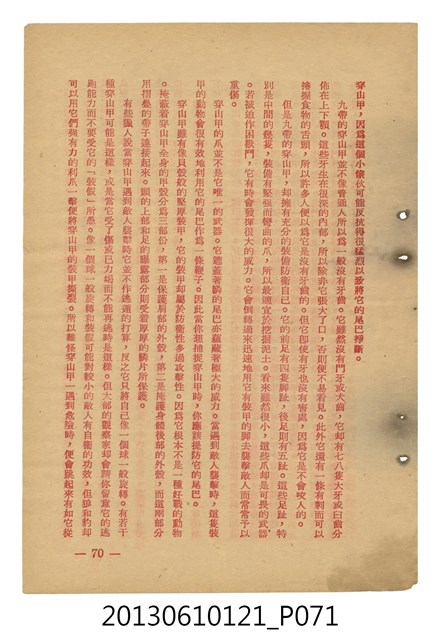 穿山甲，因爲這個小傢伙可能反抗得很猛烈以致將它的尾巴掙斷。
九帶的穿山甲並不像普通人所以爲一般沒有牙齒。它雖然沒有門牙或犬齒，它却有七八隻大牙或臼齒分
佈在上下顎。這些牙生在很深的內部，所以除非它張大了口，否則便不易看見。此外它還有一條有刺而可以
捲握食物的舌頭，所以許多人便以爲它是沒有牙齒的。但它即使有牙也沒有害處，因爲它是不會咬人的。
但是九帶的穿山甲，却擁有充分的裝備防衛自己。它的前足有四隻脚趾，後足則有五趾。這些足趾，特
別是中間的幾隻，裝備有堅強而彎曲的爪，所以最適宜於挖掘泥土。看來雖然很小，這些爪却是可畏的武器
。若被迫作困獸鬥，它有時會發揮很大的威力。它會倒轉過來迅速地用它有裝甲的脚去襲擊敵人而常常予以
重傷。
穿山甲的爪並不是它唯一的武器。它遮蓋著鱗的尾巴亦蘊藏著極大的威力。當遇到敵人襲擊時，這隻裝
甲的動物會很有效地利用它的尾巴作爲一條鞭子。因此當你想捕捉穿山甲時，你應該提防它的尾巴。
穿山甲雖有像貝殼般的堅厚裝甲，它的裝甲却屬於防衛性多過攻擊性。因爲它根本不是一種好戰的動物
。掩蔽着穿山甲全身的甲殼分爲三部份，第一是保護肩部的外殼，第二是掩護身體後部的外殼，而這兩部分
用摺疊的帶子連接起來。頭的上部和足的曝露部分則受着厚厚的鱗片所保護。
有些獵人說當穿山甲遇到敵人襲擊時它並不作逃遁的打算，反之它只將自己像一個球一般旋轉。有若干
種穿山甲可能是這樣，或是當它受了傷或已力竭而不能再逃時是這樣。但大部的觀察家却會請你留意它的逃
跑能力而不要受它的「裝假」所愚。像一個球一般旋轉和裝假可能對較小的敵人有自衛的功效，但狼和豹却
可以用它們強有力的利爪一擊便將穿山甲的裝甲撕裂。所以難怪穿山甲一遇到危險時，便會跳起來有如它從
— 70 —
20130610121_P071